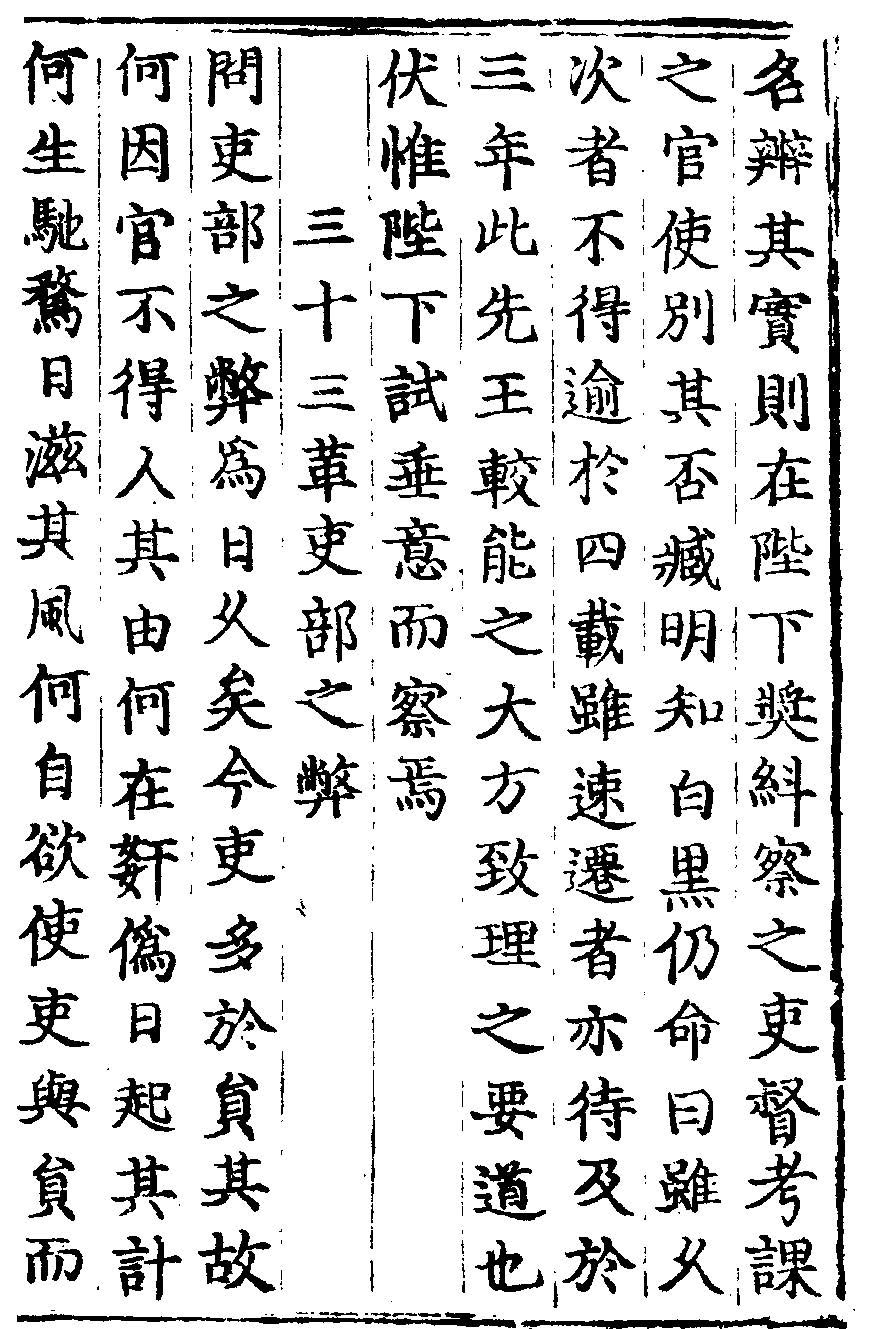 名辨其實則在陛下奬糾察之吏督考課
之官使別其否臧明知白黒仍命曰雖久
次者不得逾於四載雖速遷者亦待及於
三年此先王較能之大方致理之要道也
伏惟陛下試垂意而察焉
三十三革吏部之弊
問吏部之弊爲日久矣今吏多於負其故
何因官不得人其由何在姧僞日起其計
何生馳騖日滋其風何自欲使吏與負而